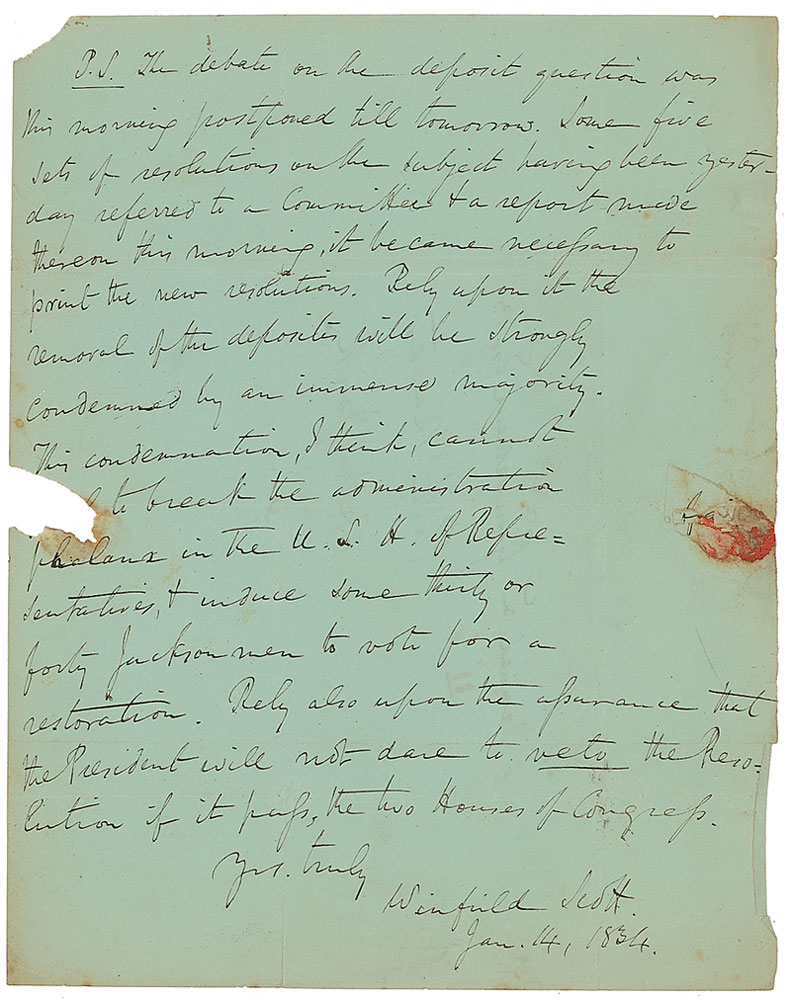 P.S. The debate on the deposit question was
this morning postponed till tomorrow. Some five
sets of resolutions on the subject having been yester-
day referred to a Committee & a report made
thereon this morning, it became necessary to
print the new resolutions. Rely upon it the
removal of the deposites will be strongly
condemned by an immense majority.
This condemnation, I think, cannot
to break the administration
phalanx in the U. S. H. of Repre=
sentatives, & induce some thirty or
forty Jackson men to vote for a
restoration. Rely also upon the assurance that
the President will not dare to veto the Reso=
lution if it pass, the two Houses of Congress.
Yrs. truly
Winfield Scott.
Jan. 14, 1834.